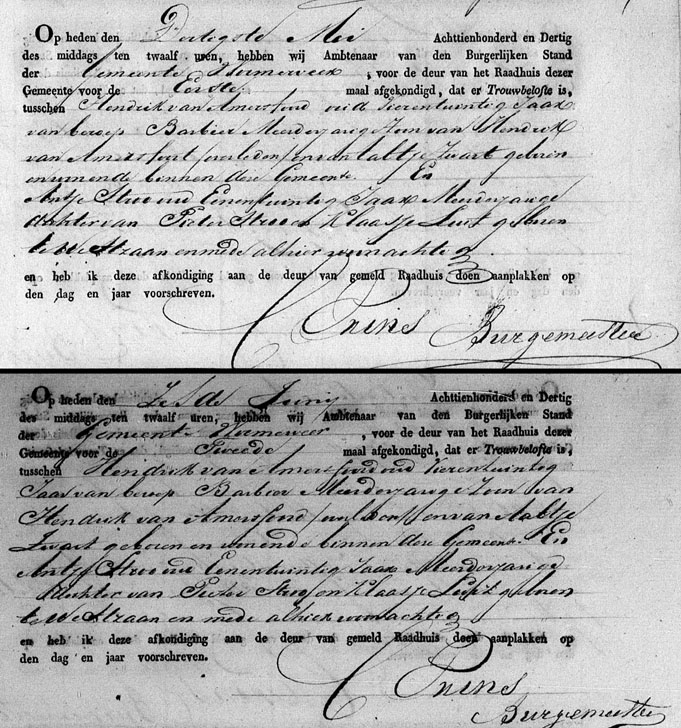 Op heden den Dertigste Mei Achttienhonderd en Dertig
des middags ten twaalf uren, hebben wij Ambtenaar van den Burgerlijken Stand
der Gemeente Wormerveer, voor de deur van het Raadhuis dezer
Gemeente voor de Eerste maal afgekondigd, dat er Trouwbelofte is,
tusschen Hendrik van Amersfoord oud Vierentwintig Jaar
van beroep Barbier Meerderjarige Zoon van Hendrik
van Amersfoort overleden en van Aaltje Zwart geboren
en wonende binnen dese Gemeente. En
Antje Stro oud Eenentwintig Jaar Meerderjarige
dochter van Pieter Stro en Klaasje Luit geboren
te West Zaan en mede alhier woonachtig
en heb ik deze afkondiging aan de deur van gemeld Raadhuis doen aanplakken op
den dag en jaar voorschreven.
Prins Burgemeester
Op heden den Zesde Junij Achttienhonderd en Dertig
des middags ten twaalf uren, hebben wij Ambtenaar van den Burgerlijken Stand
der Gemeente Wormerveer, voor de deur van het Raadhuis dezer
Gemeente voor de Tweede maal afgekondigd, dat er Trouwbelofte is,
tusschen Hendrik van Amersfoord oud Vierentwintig
Jaar van beroep Barbier Meerderjarige Zoon van
Hendrik van Amersfoord en van Aaltje
Zwart geboren en wonende binnen dese Gemeente. En
Antje Stro oud Eenentwintig Jaar Meerderjarige
dochter van Pieter Stro en Klaasje Luit geboren
te West Zaan en mede alhier woonachtig
en heb ik deze afkondiging aan de deur van gemeld Raadhuis doen aanplakken op
den dag en jaar voorschreven.
Prins
Burgemeester